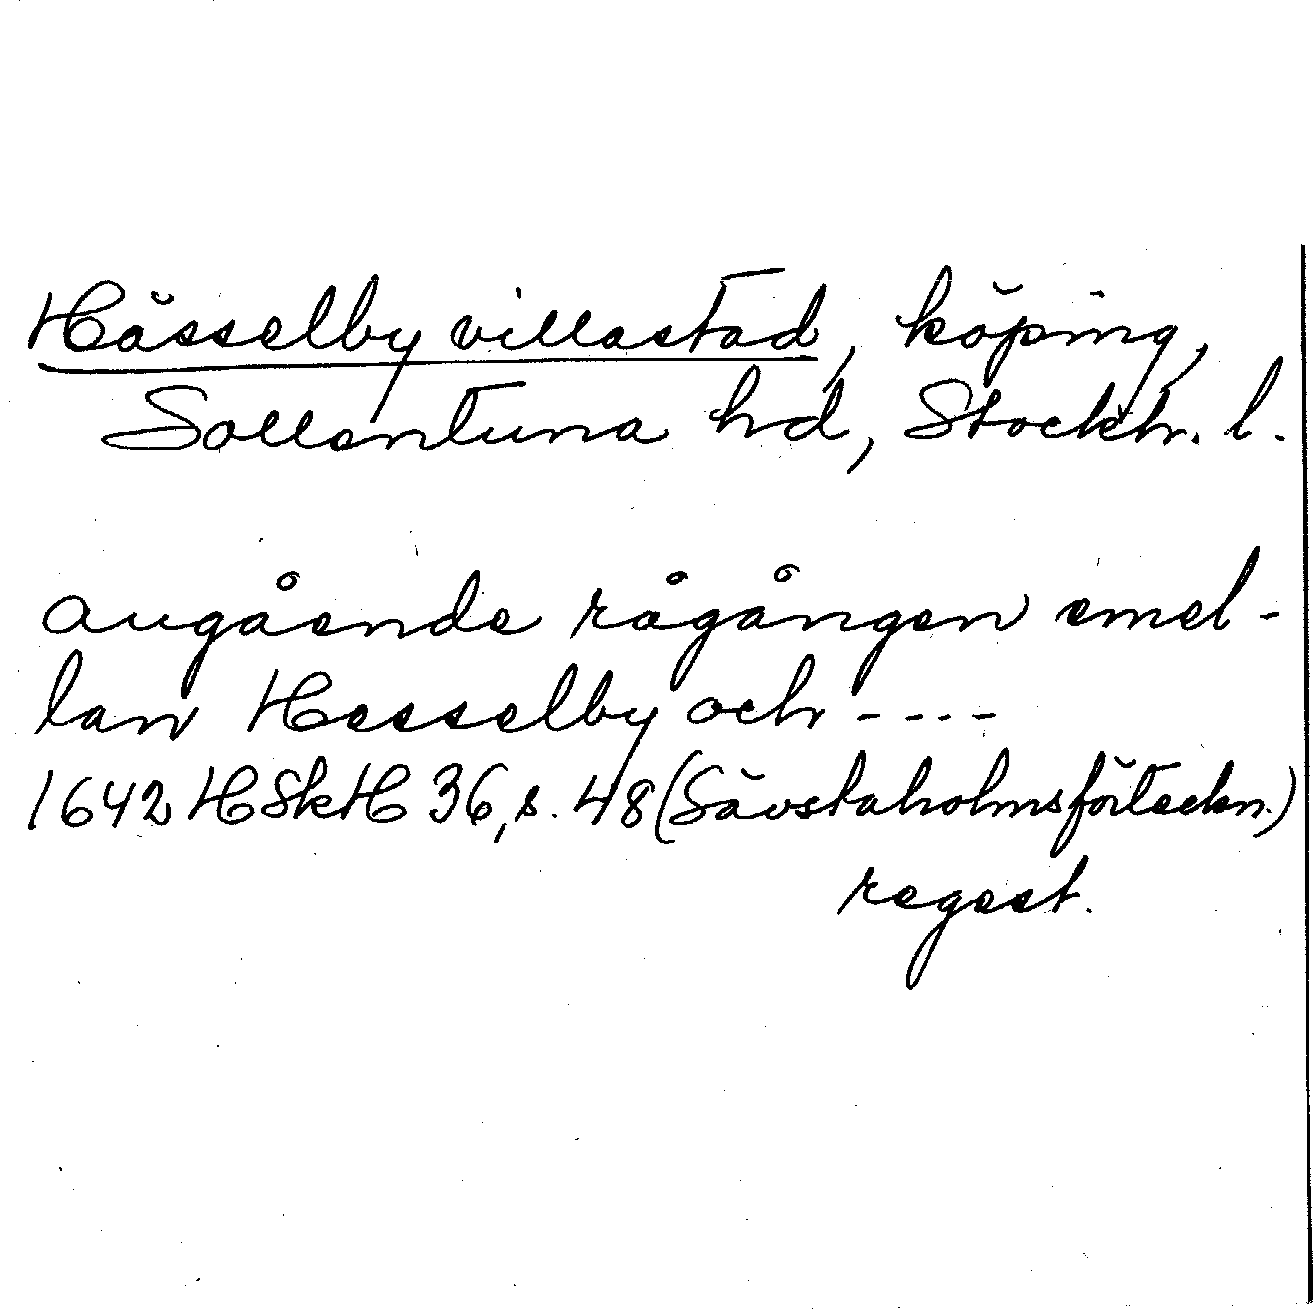 Hässelby villastad, köping,
Sollentuna hd, Stockh. l.
angående rågången emel-
lan Hesselby och ----
1642 HSkH 36, s. 48 (Sävstaholmsförteckn.)
regest.